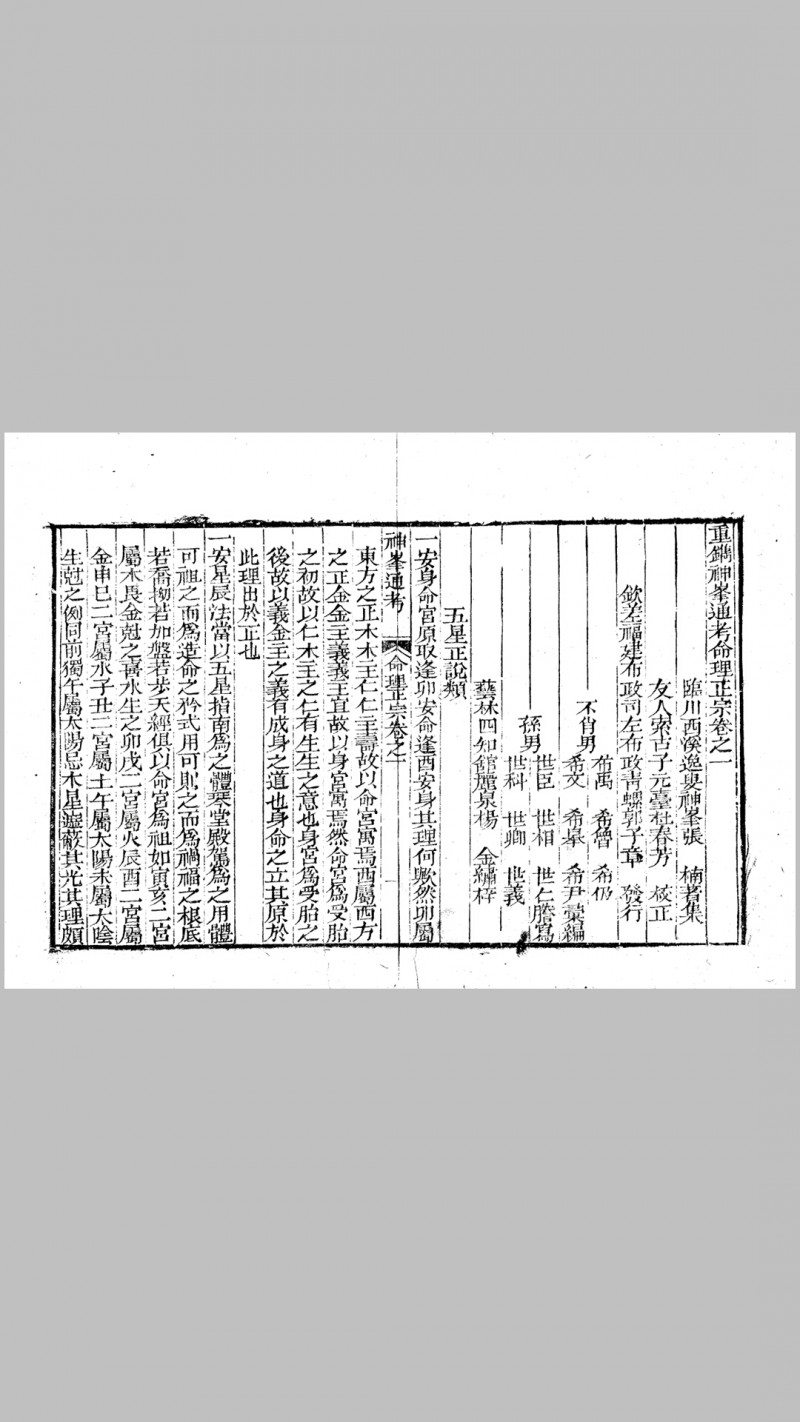 重鐫神峯通考命理正宗卷之一
臨川西溪逸叟神峯張 楠著集
友人索古子元臺杜春芳 校正
欽差福建布政司左布政青螺郭子章 發行
不肖男
希禹 希曾 希伋
希文 希摹 希尹彙編
孫男
世臣 世相 世仁謄寫
世科 世卿 世義
藝林四知館麗泉楊 金繡梓
五星正說類
一安身命宮原取逢卯安命逢酉安身其理何歟然卯屬
神峯通考
命理正宗卷之一
東方之正木木主仁仁主壽故以命宮寓焉酉屬西方
之正金金主義義主宜故以身宮寓焉然命宮爲受胎
之初故以仁木主之仁有生生之意也身宮爲受胎之
後故以義金主之義有成身之道也身命之立其原於
此理出於正也
一安星辰法當以五星指南爲之體琹堂殿駕爲之用體
可祖之而爲造命之矜式用可則之而爲禍福之根底
若喬拗若加盤若步天經俱以命宮爲祖如寅亥二宮
屬木畏金尅之喜水生之卯戌二宮屬火辰酉二宮屬
金申巳二宮屬水子丑二宮屬土午屬太陽未屬太陰
生尅之例同前獨午屬太陽忌木星遮蔽其光其理頗